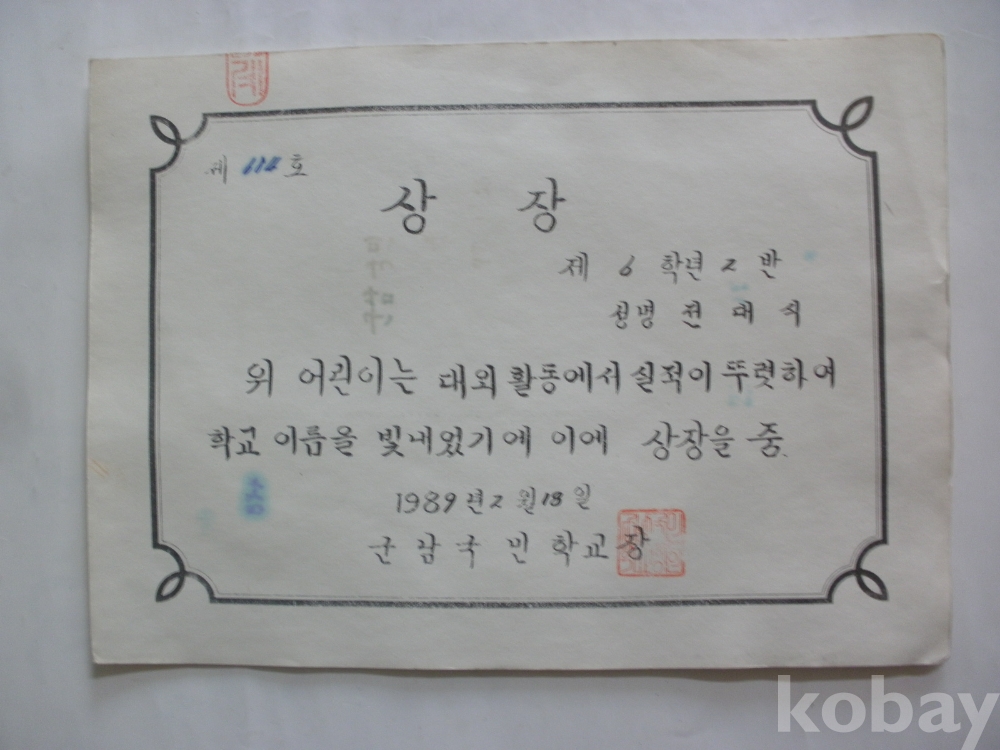 제 114 호
상 장
제 6 학년 2 반
성명 전 대 식
위 어린이는 대외 활동에서 실적이 뚜렷하여
학교 이름을 빛내었기에 이에 상장을 줌.
1989년 2월 18일
군남국민학교장
kobay